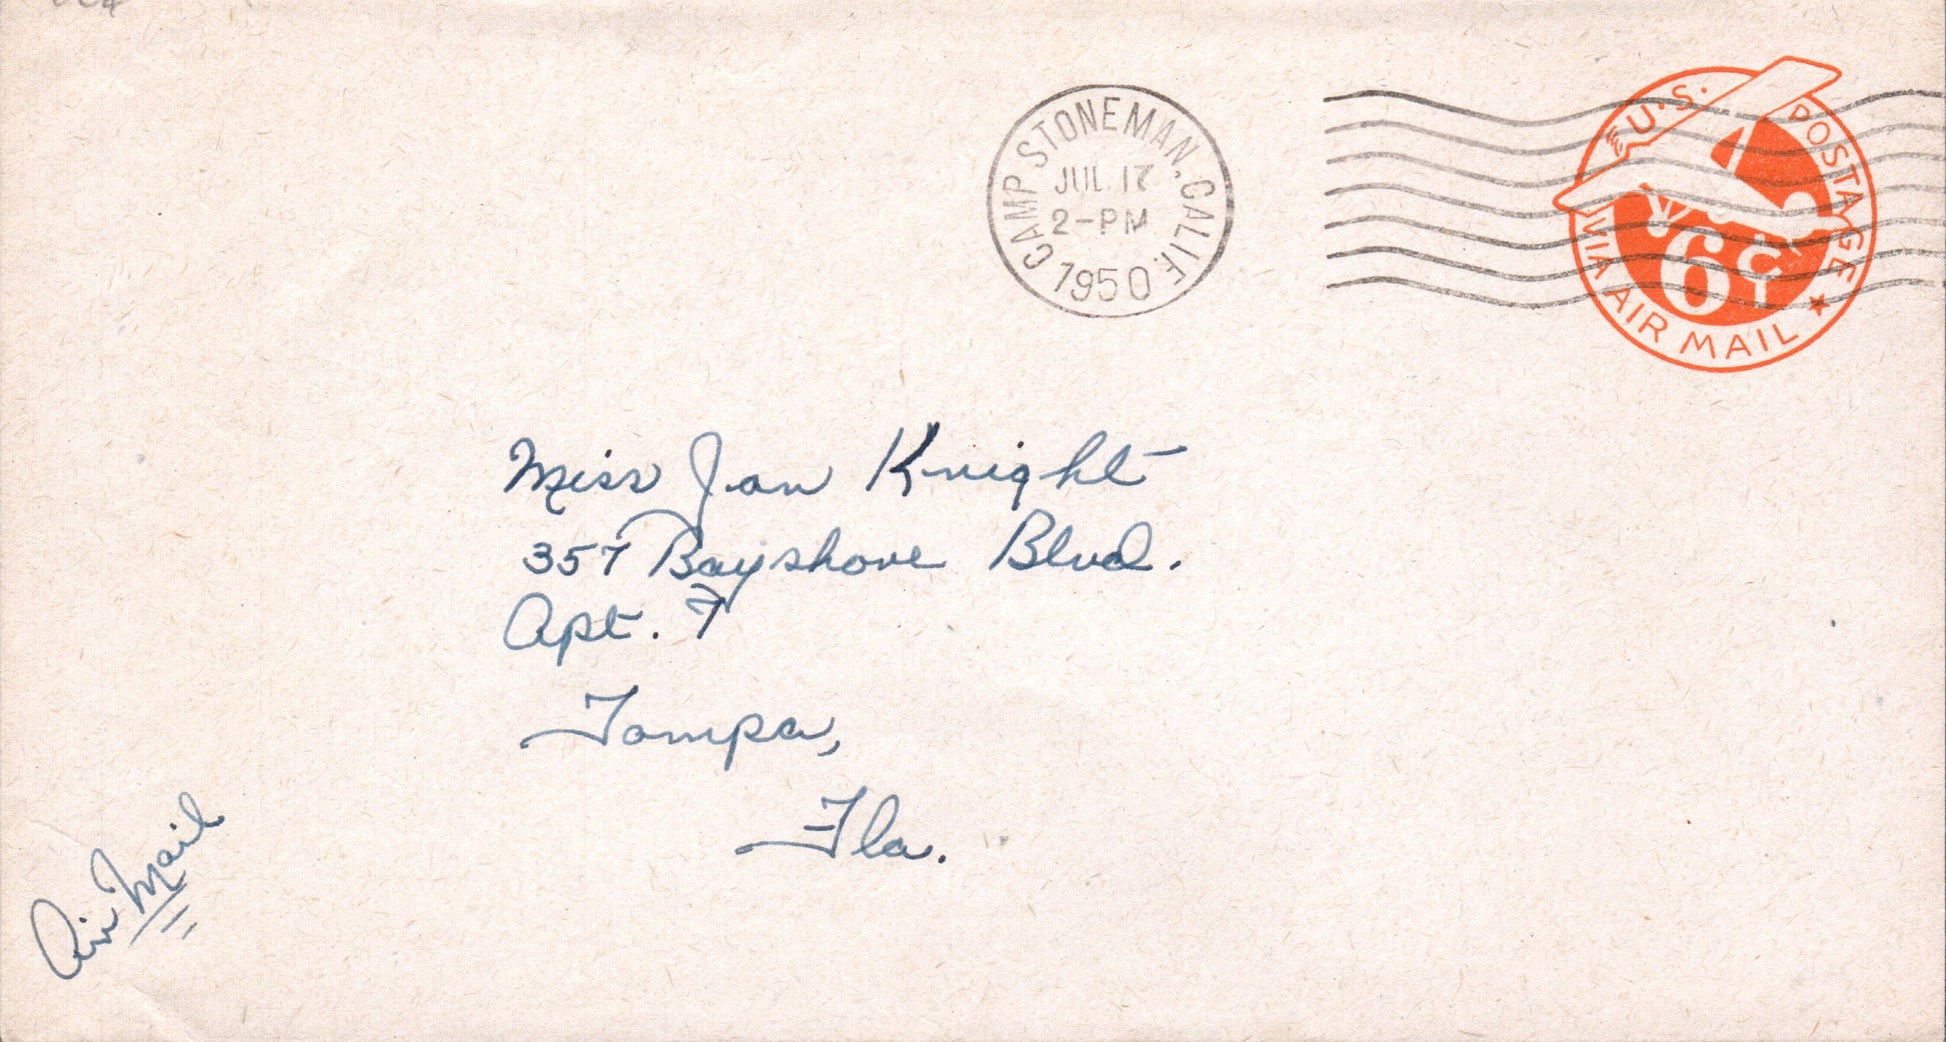 CAMP STONEMAN, CALIF.
JUL 17
2-PM
1950
U.S. POSTAGE
6¢
VIA AIR MAIL
Miss Jan Knight
357 Bayshore Blvd.
Apt. 7
Tampa,
Fla.
Air Mail